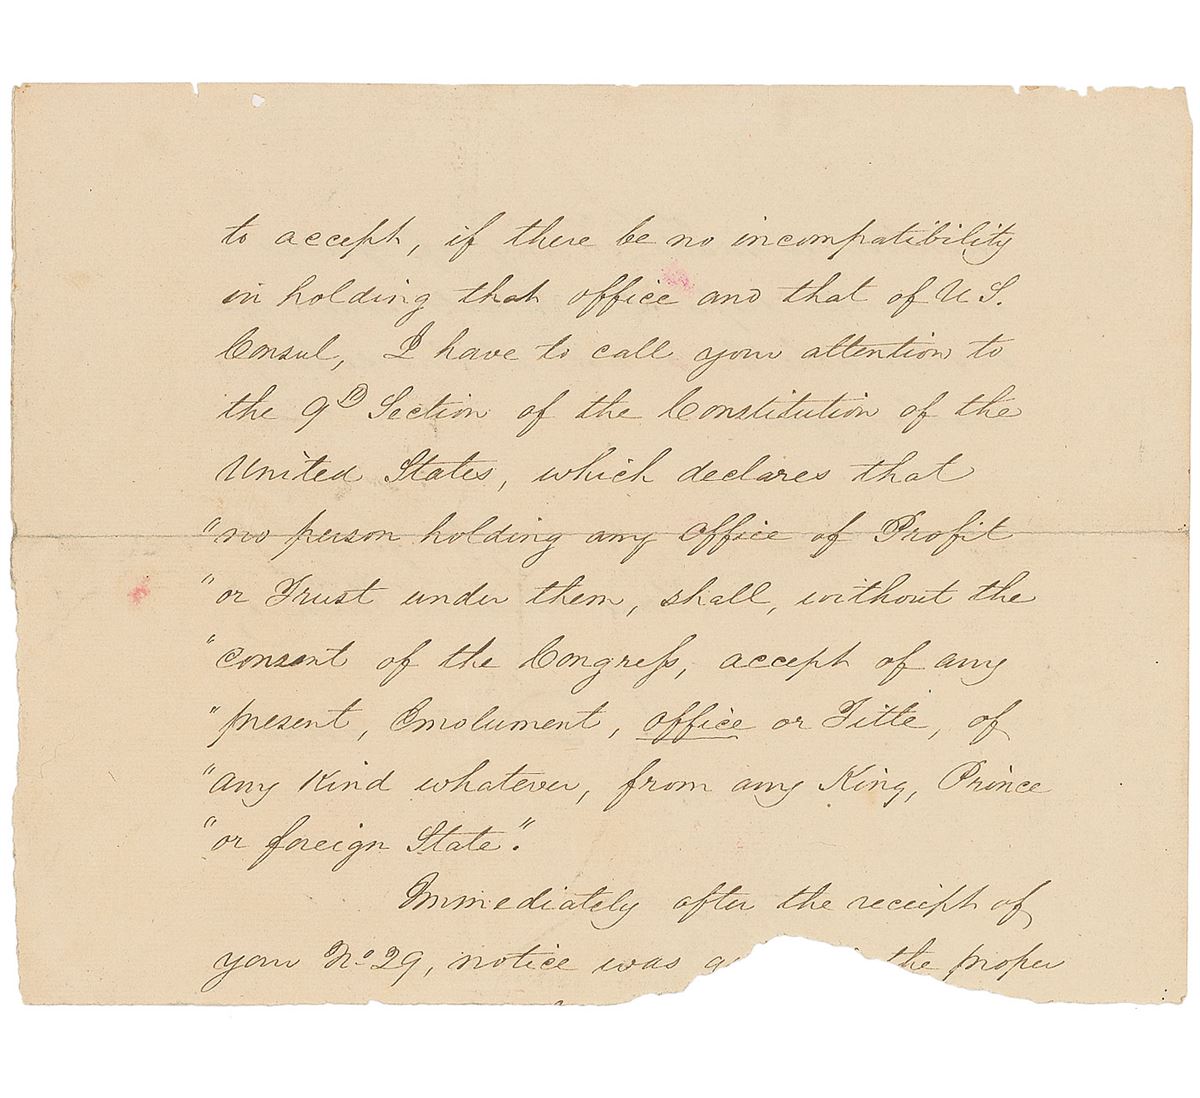 to accept, if there be no incompatibility
in holding that office and that of U S.
Consul, I have to call your attention to
the 9th Section of the Constitution of the
United States, which declares that
"no person holding any Office of Profit
"or Trust under them, shall, without the
"consent of the Congress, accept of any
"present, Emolument, office or Title, of
"any Kind whatever, from any King, Prince
"or foreign State".
Immediately after the receipt of
your No 29, notice was the proper